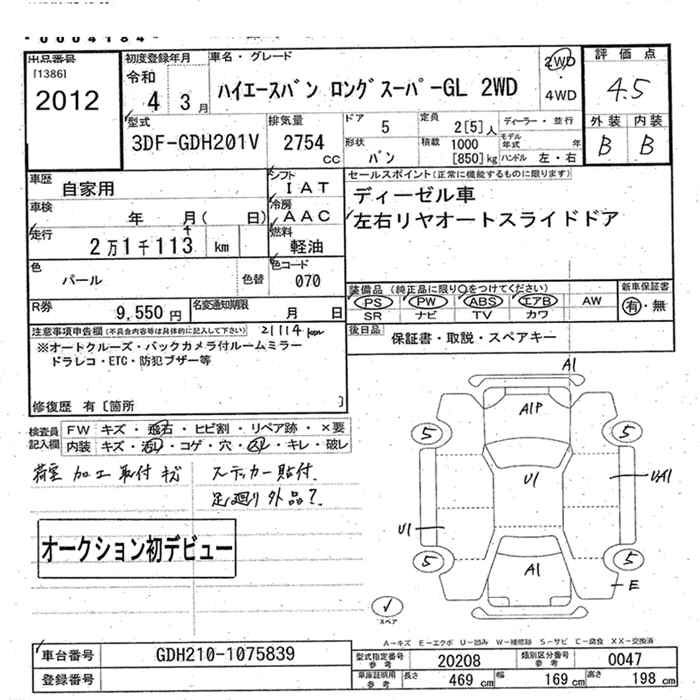 -0004184-
出品番号
[1386]
2012
初度登録年月
令和
4 3月
車名・グレード
ハイエースバン ロングスーパーGL 2WD
2WD
・
4WD
評価点
4.5
外装 内装
B B
型式
3DF-GDH201V
排気量
2754
CC
ドア 5
形状 バン
定員 2[5]人
積載 1000
[850]kg
ディーラー・並行
モデル
年式 年
ハンドル 左・右
車歴
自家用
シフト
IAT
車検
年 月( 日)
冷房
AAC
走行
2万1千113 km
燃料
軽油
色
パール
色替
色コード
070
R券
9,550円
名変通知期限
月 日
セールスポイント(正常に機能するものに限ります)
ディーゼル車
左右リヤオートスライドドア
装備品(純正品に限り○をつけてください)
PS PW ABS エアB AW
SR ナビ TV カワ
新車保証書
有・無
後日品
保証書・取説・スペアキー
注意事項申告欄(不具合内容等は具体的に記入して下さい)
21114km
※オートクルーズ・バックカメラ付ルームミラー
ドラレコ・ETC・防犯ブザー等
修復歴 有[箇所 ]
検査員
記入欄
FW キズ・飛石・ヒビ割・リペア跡・×要
内装 キズ・汚れ・コゲ・穴・スレ・キレ・破レ
荷室 加工 取付 キズ ステッカー貼付.
足廻り外品?
オークション初デビュー
A1
A1P
5 5
U1
UA1
U1
5 5
A1
E
スペア
A-キズ E-エクボ U-凹み W-補修跡 S-サビ C-腐食 XX-交換済
車台番号
GDH210-1075839
登録番号
型式指定番号
参考
20208
類別区分番号
参考
0047
車庫証明用
参考
長さ 469 cm 幅 169 cm 高さ 198 cm